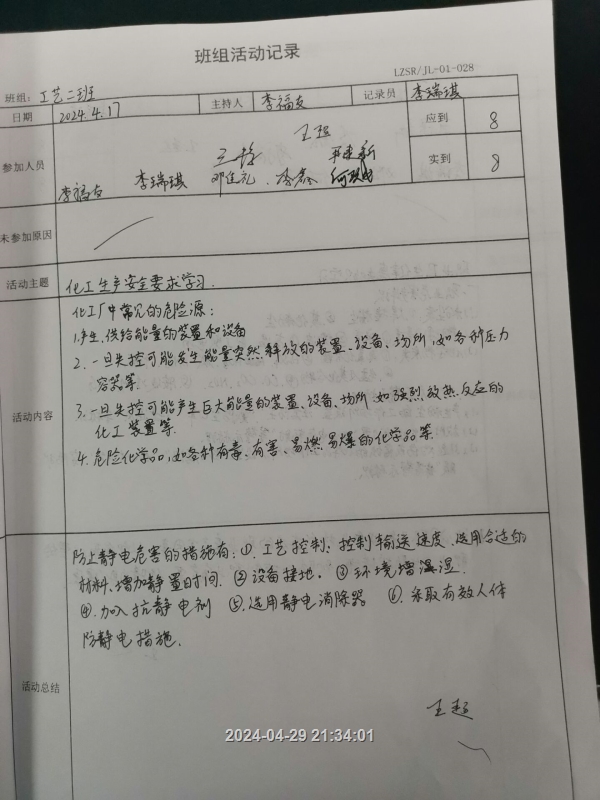 班组活动记录
LZSR/JL-01-028
班组: 工艺二班
日期 2024.4.17 主持人 李福友 记录员 李瑞琪
参加人员 王超 应到 8
李福友 李瑞琪 实到 8
未参加原因
活动主题 化工生产安全要求学习.
活动内容
化工厂中常见的危险源:
1.产生、供给能量的装置和设备
2. 一旦失控可能发生能量突然释放的装置、设备、场所,如各种压力
容器等.
3. 一旦失控可能产生巨大能量的装置、设备、场所.如强烈放热反应的
化工装置等.
4. 危险化学品,如各种有毒、有害、易燃易爆的化学品等.
活动总结
防止静电危害的措施有: ①. 工艺控制: 控制输送速度、选用合适的
材料、增加静置时间. ②设备接地. ③环境增湿.
④.加入抗静电剂 ⑤.选用静电消除器 ⑥.采取有效人体
防静电措施.
王超
2024-04-29 21:34:01